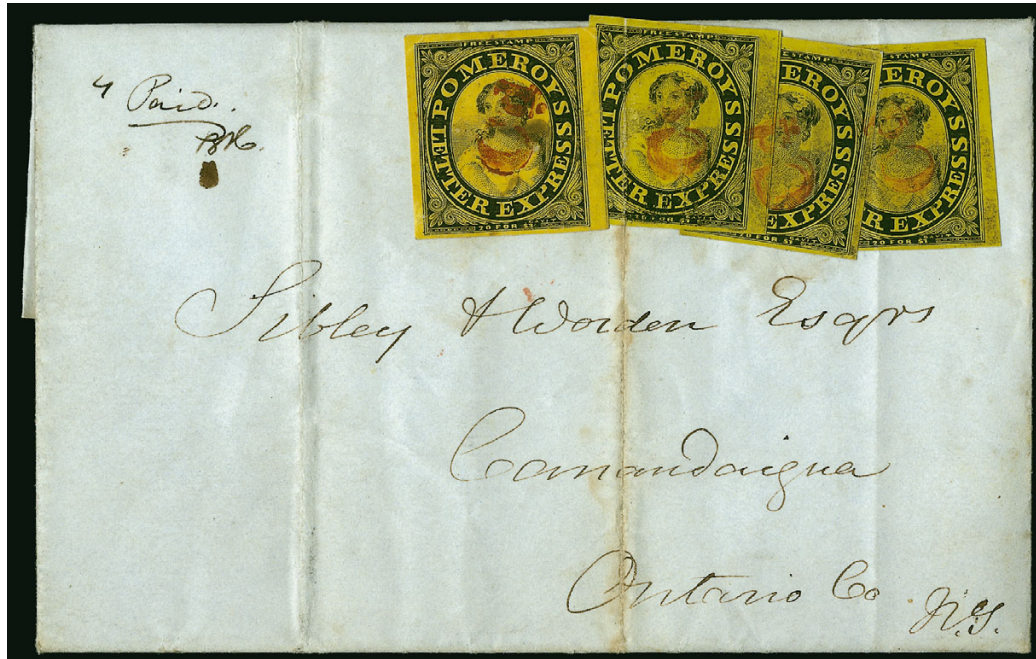 4 Paid.
FREE STAMP
POMEROYS LETTER EXPRESS
20 FOR $1
FREE STAMP
POMEROYS LETTER EXPRESS
20 FOR $1
STAMP
POMEROYS EXPRESS
20 FOR $1
STAMP
POMEROYS LETTER EXPRESS
20 FOR $1
Sibley & Worden Esqrs
Canandaigua
Ontario Co N.Y.